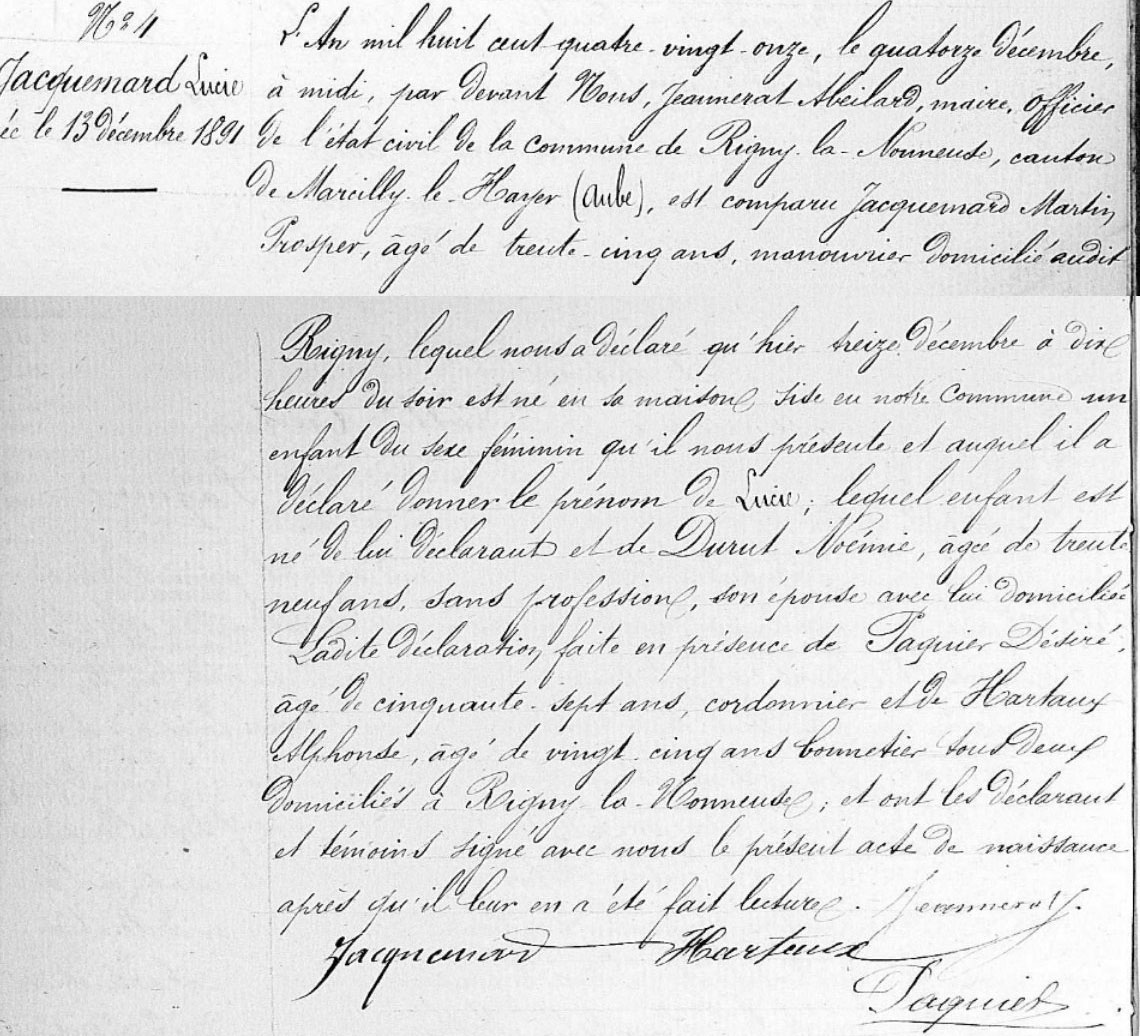 N° 4
Jacquemard Lucie
ée le 13 décembre 1891
L'An mil huit cent quatre-vingt-onze, le quatorze décembre,
à midi, par devant Nous, Jeannerat Abeilard, maire, officier
de l'état civil de la commune de Rigny-la-Nonneuse, canton
de Marcilly-le-Hayer (Aube), est comparu Jacquemard Martin
Prosper, âgé de trente-cinq ans, manouvrier domicilié audit
Rigny, lequel nous a déclaré qu'hier treize décembre à dix
heures du soir est né en sa maison sise en notre commune un
enfant du sexe féminin qu'il nous présente et auquel il a
déclaré donner le prénom de Lucie; lequel enfant est
né de lui déclarant et de Durut Noémie, âgée de trente
neuf ans, sans profession, son épouse avec lui domiciliée
Ladite déclaration faite en présence de Paquier Désiré,
âgé de cinquante-sept ans, cordonnier et de Hartaux
Alphonse, âgé de vingt-cinq ans bonnetier tous deux
domiciliés à Rigny-la-Nonneuse; et ont les déclarant
et témoins signé avec nous le présent acte de naissance
après qu'il leur en a été fait lecture. Jeannerat.
Jacquemard Hartaux
Paquier